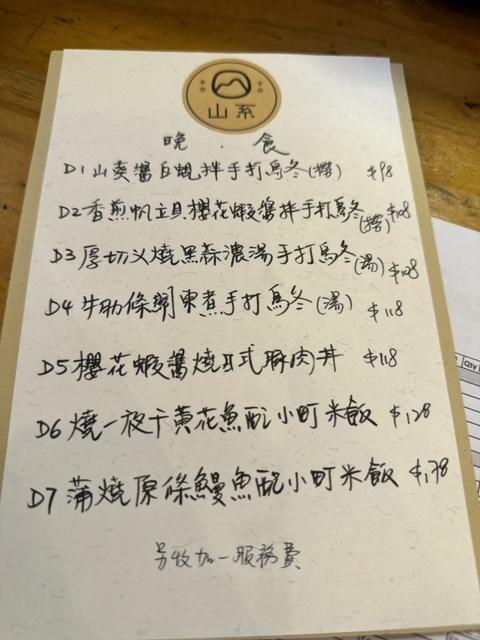 山系
晚.食
D1山葵醬白蜆拌手打烏冬(撈) $98
D2香煎帆立貝櫻花蝦醬拌手打烏冬(撈) $108
D3厚切叉燒黑蒜濃湯手打烏冬(湯) $108
D4牛肋條關東煮手打烏冬(湯) $118
D5櫻花蝦醬燒日式豚肉丼 $118
D6燒一夜干黃花魚配小町米飯 $128
D7蒲燒原條鰻魚配小町米飯 $178
另收加一服務費
Qty